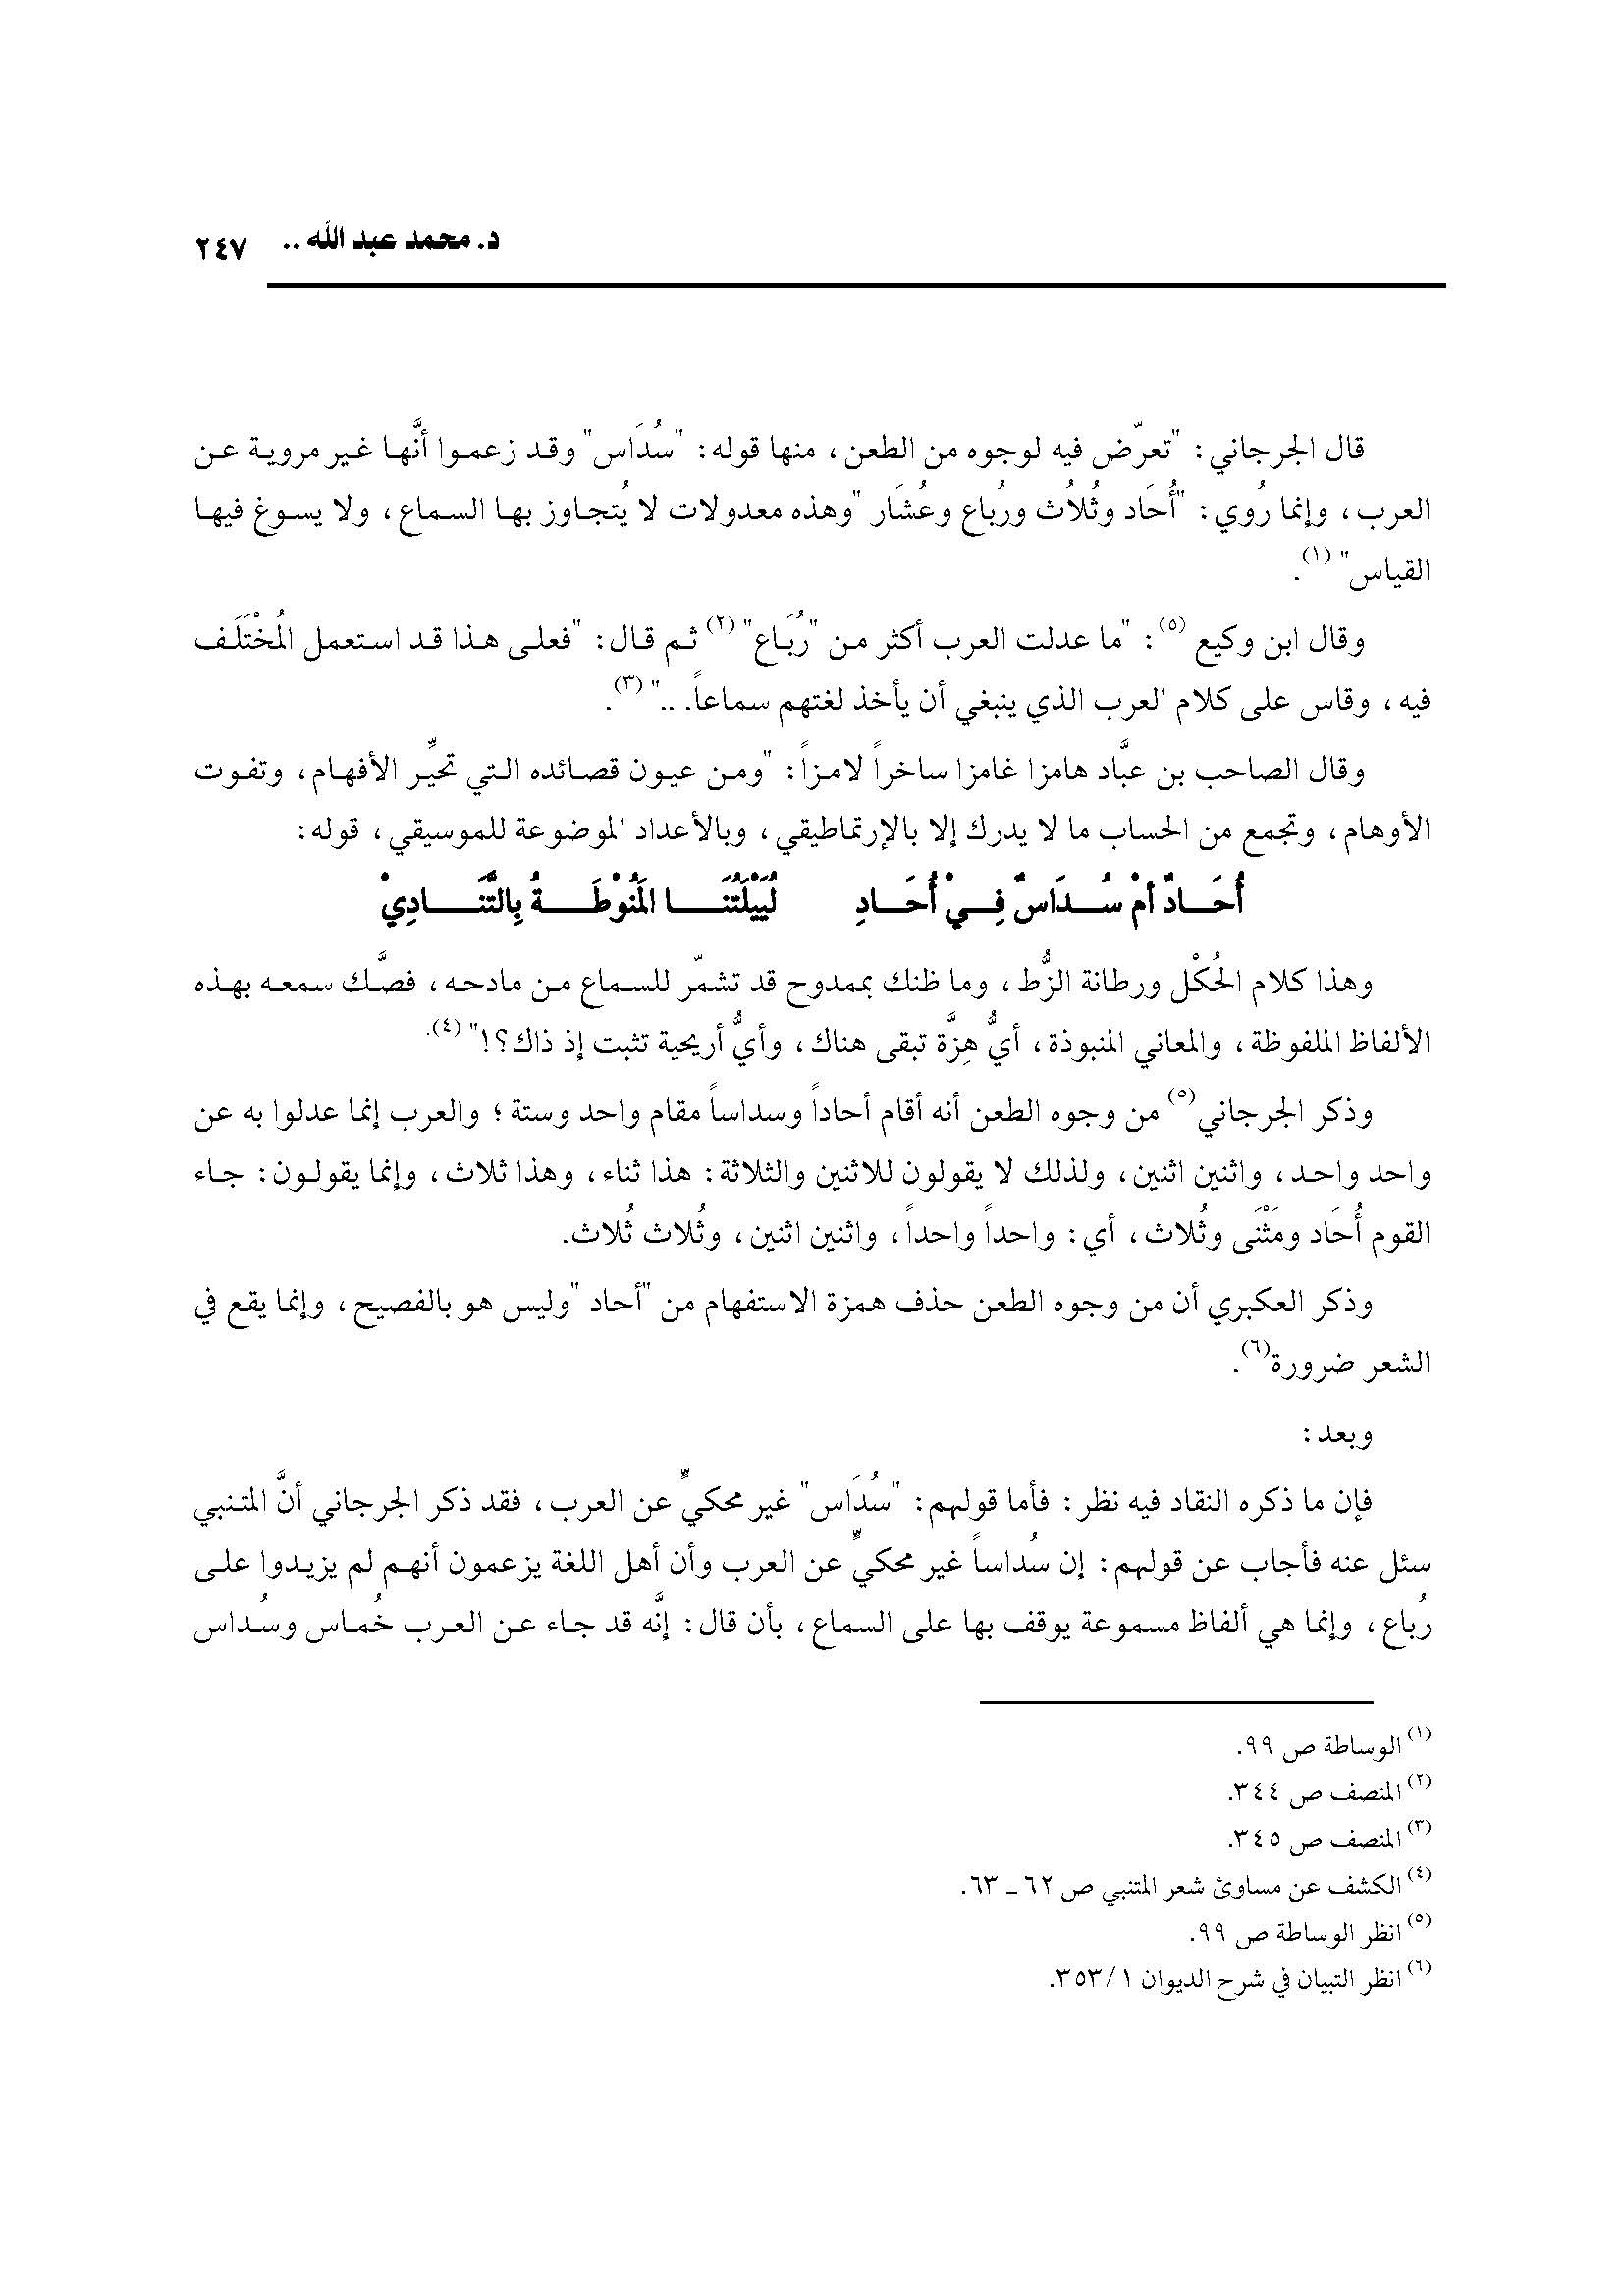 د. محمد عبد الله .. ٢٤٧
قال الجرجاني: "تعرّض فيه لوجوه من الطعن، منها قوله: "سُدَاس" وقد زعموا أنَّها غير مروية عن
العرب، وإنما رُوي: "أُحَاد وثُلاُث ورُباع وعُشَار "وهذه معدولات لا يُتجاوز بها السماع، ولا يسوغ فيها
القياس" (١).
وقال ابن وكيع (٥): "ما عدلت العرب أكثر من "رُبَاع" (٢) ثم قال: "فعلى هذا قد استعمل المُخْتَلَف
فيه، وقاس على كلام العرب الذي ينبغي أن يأخذ لغتهم سماعاً. .." (٣).
وقال الصاحب بن عبَّاد هامزا غامزا ساخراً لامزاً: "ومن عيون قصائده التي تحيِّر الأفهام، وتفوت
الأوهام، وتجمع من الحساب ما لا يدرك إلا بالإرتماطيقي، وبالأعداد الموضوعة للموسيقي، قوله:
أُحَـادٌ أمْ سُـدَاسٌ فِـيْ أُحَـادِ لُيَيْلَتُنَـا المَنُوْطَـةُ بِالتَّنَـادِيْ
وهذا كلام الحُكْل ورطانة الزُّط، وما ظنك بممدوح قد تشمّر للسماع من مادحه، فصَّك سمعه بهذه
الألفاظ الملفوظة، والمعاني المنبوذة، أيُّ هِزَّة تبقى هناك، وأيُّ أريحية تثبت إذ ذاك؟!" (٤).
وذكر الجرجاني (٥) من وجوه الطعن أنه أقام أحاداً وسداساً مقام واحد وستة؛ والعرب إنما عدلوا به عن
واحد واحد، واثنين اثنين، ولذلك لا يقولون للاثنين والثلاثة: هذا ثناء، وهذا ثلاث، وإنما يقولون: جاء
القوم أُحَاد ومَثْنَى وثُلاث، أي: واحداً واحداً، واثنين اثنين، وثُلاث ثُلاث.
وذكر العكبري أن من وجوه الطعن حذف همزة الاستفهام من "أحاد "وليس هو بالفصيح، وإنما يقع في
الشعر ضرورة(٦).
وبعد:
فإن ما ذكره النقاد فيه نظر: فأما قولهم: "سُدَاس" غير محكيٍّ عن العرب، فقد ذكر الجرجاني أنَّ المتنبي
سئل عنه فأجاب عن قولهم: إن سُداساً غير محكيٍّ عن العرب وأن أهل اللغة يزعمون أنهم لم يزيدوا على
رُباع، وإنما هي ألفاظ مسموعة يوقف بها على السماع، بأن قال: إنَّه قد جاء عن العرب خُماس وسُداس
(١) الوساطة ص ٩٩.
(٢) المنصف ص ٣٤٤.
(٣) المنصف ص ٣٤٥.
(٤) الكشف عن مساوئ شعر المتنبي ص ٦٢ ـ ٦٣.
(٥) انظر الوساطة ص ٩٩.
(٦) انظر التبيان في شرح الديوان ١/ ٣٥٣.